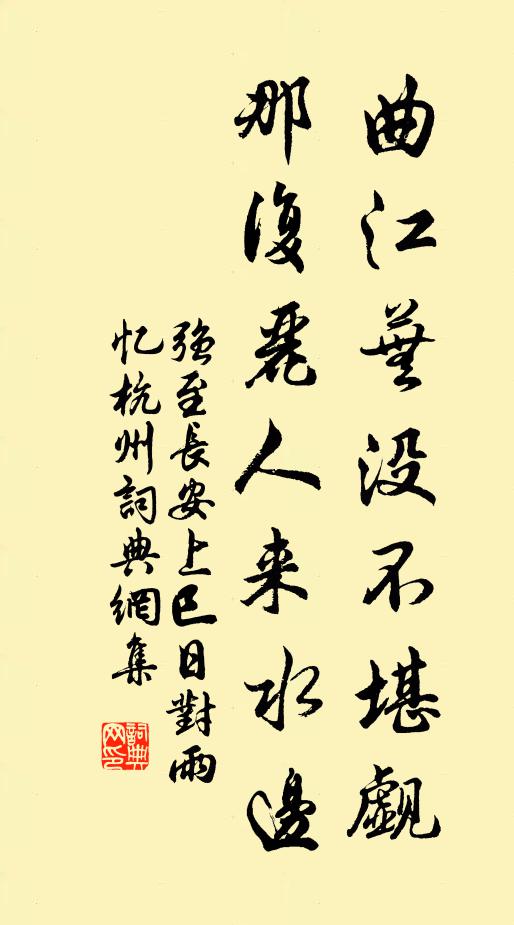 曲江蕪没不堪觑
那復麗人来水邊
强至長安上巳日對雨
忆杭州詞典網集
詞典網印